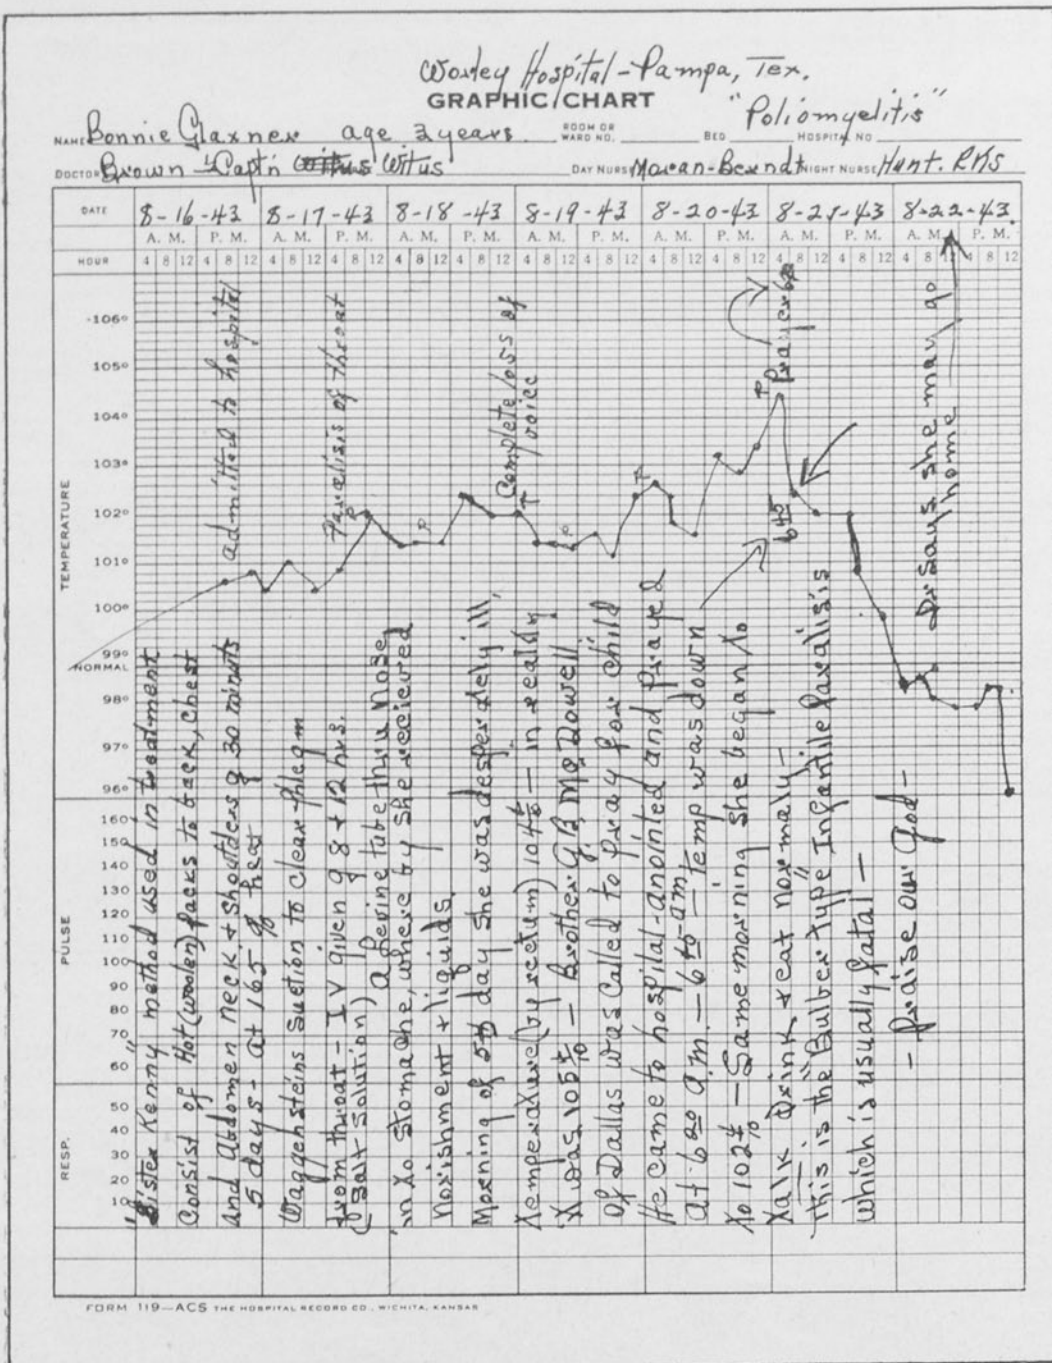 Worley Hospital - Pampa, Tex.
GRAPHIC CHART
"Poliomyelitis"
NAME Bonnie Glaxner age 3 years ROOM OR WARD NO. BED HOSPITAL NO
DOCTOR Brown - Capt'n Witus DAY NURSE Moran-Berndt NIGHT NURSE Hunt. RKS
DATE 8-16-43 8-17-43 8-18-43 8-19-43 8-20-43 8-21-43 8-22-43.
A. M. P. M. A. M. P. M. A. M. P. M. A. M. P. M. A. M. P. M. A. M. P. M. A. M. P. M.
HOUR 4 8 12 4 8 12 4 8 12 4 8 12 4 8 12 4 8 12 4 8 12 4 8 12 4 8 12 4 8 12 4 8 12 4 8 12 4 8 12 4 8 12
TEMPERATURE
106°
105°
104°
103°
102°
101°
100°
99°
NORMAL
98°
97°
96°
PULSE
160
150
140
130
120
110
100
90
80
70
60
RESP.
50
40
30
20
10
admitted to hospital
Paralisis of throat
P
P
Complete loss of
voice
P
P
P
Prayer
6 40
Dr says she may go
home
"Sister Kenny" method used in treatment
Consist of Hot (woolen) packs to back, Chest
and Abdomen neck & Shoulders q 30 minuts
5 days - at 165 % heat
Waggensteins Suction to Clear phlegm
from throat - I V given q 8 & 12 hrs.
(Salt Solution) a Levine tube thru Nose
in to Stomache, where by she recieved
Norishment & liquids.
Morning of 5th day she was desperately ill,
temperature (by rectum) 104 — in reality
it was 105 — Brother G.B. McDowell
of Dallas was Called to pray for child
He came to hospital - anointed and Prayed
At 6 20 a.m. — 6 40 am — Temp was down
to 102 4/10 — Same morning she began to
talk drink & eat normaly —
This is the "Bulber" type Infantile Paralisis
which is usually fatal —
- Praise our God -
FORM 119—ACS THE HOSPITAL RECORD CO., WICHITA, KANSAS